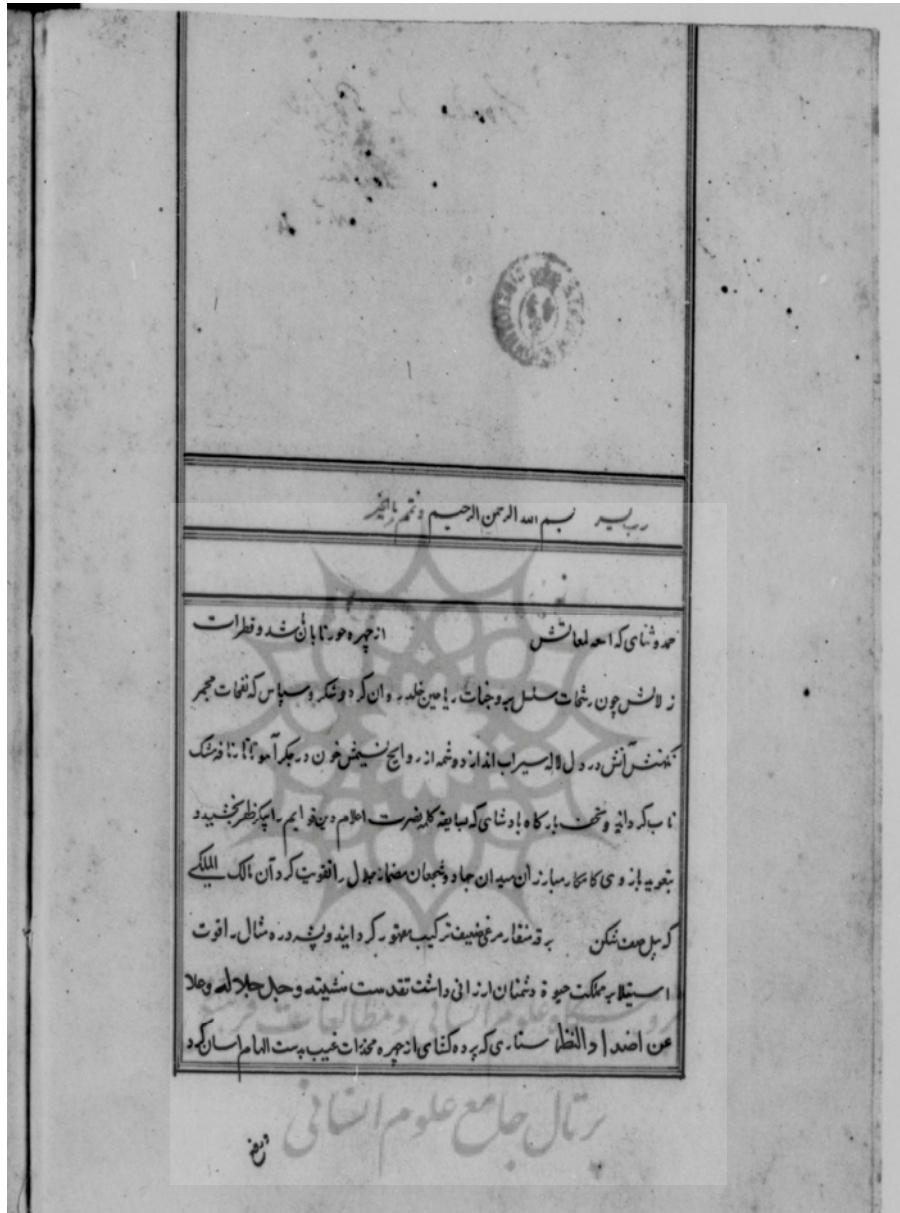 رب یسر بسم الله الرحمن الرحیم و تمم بالخیر
حمد و ثنای که لمعاتش از چهره حور تابان شد و قطرات
زلالش چون رشحات سلسبیل بر وجنات ریاحین خلد روان کرد و شکر و سپاس که نفحات مجمر
آتش در دل لاله سیراب اندازد و شمه از روایح نسیمش خون در جگر آهو نافه مشک
ناب گرداند و بارگاه پادشاهی که کلمه نصرت اعلام دین را پیکر ظفر بخشید و
بتقویه بازوی کامکار مبارزان میدان جهاد و شجعان مضمار جلال را تقویت کرد آن مالک الملکی
که پیل صف شکن بر قد منقار مرغ ضعیف ترکیب مقهور گردانید و پشه ذره مثال را قوت
استیلا بر مملکت حیوة دشمنان ارزانی داشت تقدست مشیته و جل جلاله و علا
عن اضداد والنظا ستاری که پرده گشای از چهره مخدرات غیب بدست الهام آسان کرد
پرتال جامع علوم انسانی
پژوهشگاه علوم انسانی و مطالعات فرهنگی